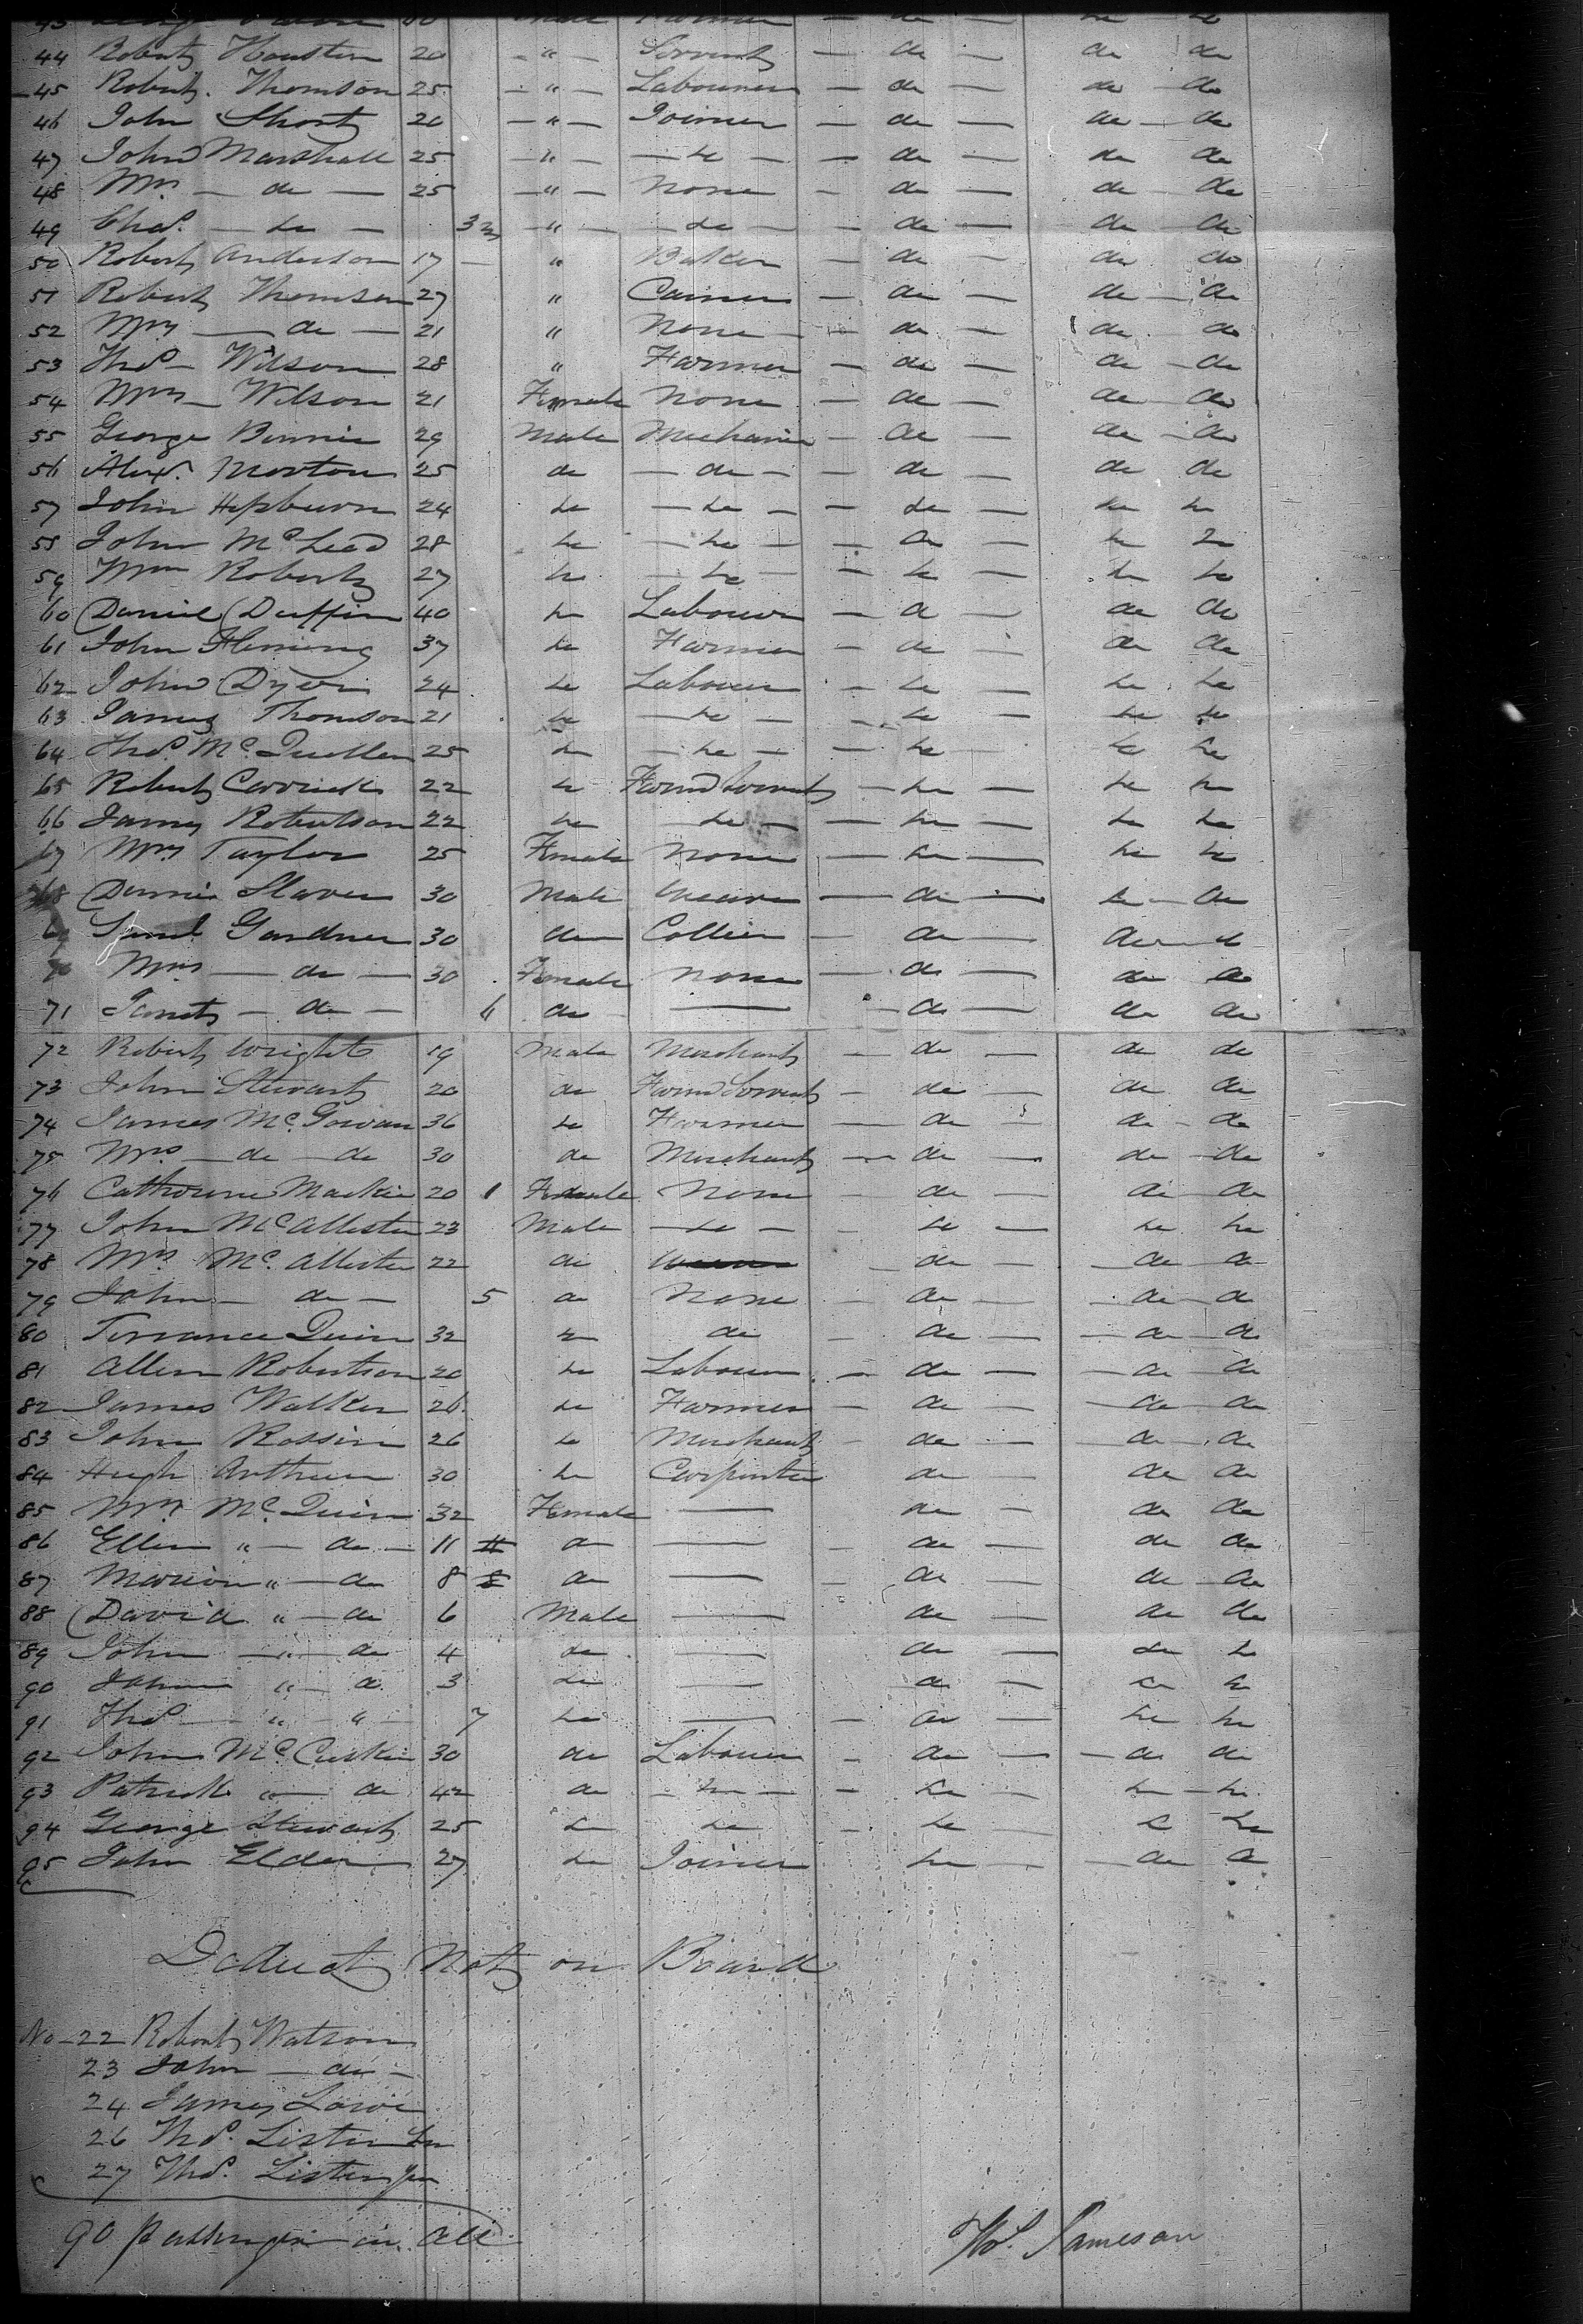 44 Robert Houston 20 " Servant do do do
45 Robert Thomson 25 " Labourer do do do
46 John Short 20 " Joiner do do do
47 John Marshall 25 " do do do do
48 Mrs do 25 " None do do do
49 Chas. do 3 " do do do do
50 Robert Anderson 17 " Baker do do do
51 Robert Thomson 27 " do do do
52 Mrs do 21 " None do do do
53 Thos Wilson 28 " Farmer do do do
54 Mrs Wilson 21 Female None do do do
55 George Binnie 29 Male Mechanic do do do
56 Alexr. Morton 25 do do do do do
57 John Hepburn 24 do do do do do
58 John McLeod 28 do do do do do
59 Wm Roberts 27 do do do do do
60 Daniel Duffin 40 do Labourer do do do
61 John Fleming 37 do Farmer do do do
62 John Dyer 24 do Labourer do do do
63 James Thomson 21 do do do do do
64 Thos. Mc 25 do do do do do
65 Robert Carrick 22 do Farm Servant do do do
66 James Robertson 22 do do do do do
67 Mrs Taylor 25 Female None do do do
68 Dennis Slaven 30 Male Weaver do do do
69 Saml Gardner 30 do Collier do do do
70 Mrs do 30 Female None do do do
71 Janet do do do do do
72 Robert Wright 19 Male Merchant do do do
73 John Stewart 20 do Farm Servant do do do
74 James McGowan 36 do Farmer do do do
75 Mrs do do 30 do Merchant do do do
76 Catherine Mackie 20 Female None do do do
77 John McAllister 23 Male do do do do
78 Mrs McAllister 22 do do do do
79 John do 5 do None do do do
80 Terrance Quin 32 do do do do do
81 Allen Robertson 20 do Labourer do do do
82 James Walker 26 do Farmer do do do
83 John Rossin 26 do Merchant do do do
84 Hugh Arthur 30 do Carpenter do do do
85 Mrs McQuin 32 Female do do do
86 Ellen " do 11 do do do do
87 Marion " do 8 do do do do
88 David " do 6 Male do do do
89 John " do 4 do do do do
90 " do 3 do do do do
91 Thos " " 7 do do do do
92 John McCuskin 30 do Labourer do do do
93 Patrick " do 42 do do do do do
94 George Stewart 25 do do do do do
95 John Elder 27 do Joiner do do do
Deduct Not on Board
No 22 Robert Watson
23 John do
24 James Lowe
26 Thos. Lister Sn
27 Thos. Lister Jun
90 passengers in all
Thos. Jameson